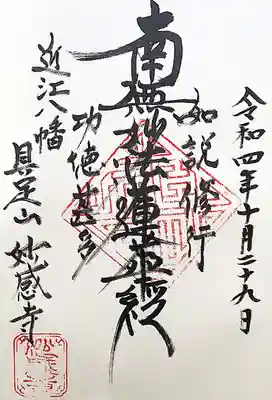 令和四年十月二十九日
如説修行
南無妙法蓮華経
功徳甚多
近江八幡
具足山 妙感寺